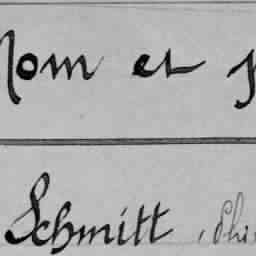 Nom et p
Schmitt, Phi